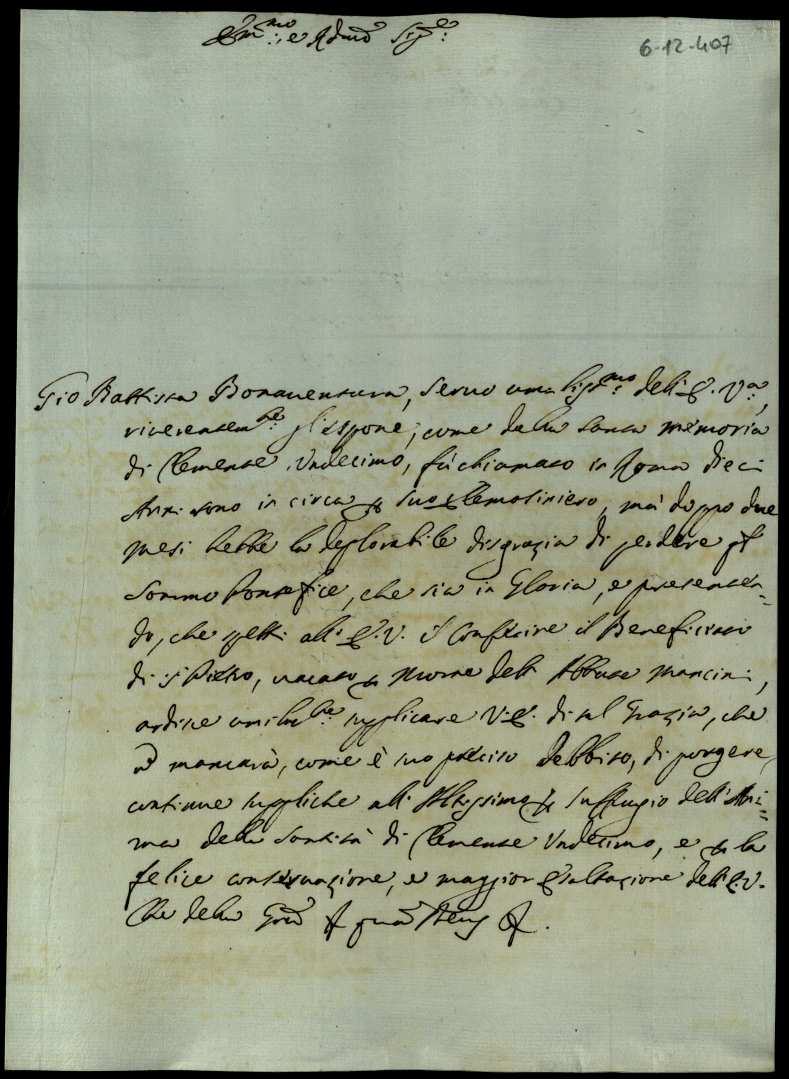 Em:mo e Rdmo Sig:e
6-12-407
Gio Battista Bonaventura, servo umiliss:mo dell'E. V.a,
riverentem:te gl'espone, come dalla santa memoria
di Clemente Undecimo, fù chiamato in Roma dieci
Anni sono in circa p suo Elemosiniero, mà doppo due
mesi hebbe la deplorabile disgrazia di perdere
Sommo Pontefice, che sia in Gloria, e presenten=
do, che spetti all'E. V. il Conferire il Beneficiato
di S. Pietro, vacato p Morte dell'Abbate Mancini,
ardisce umilm:te supplicare V. E. di tal Grazia, che
nõ mancarà, come è suo preciso debbito, di porgere,
continue suppliche all'Altissimo p Suffragio dell'Ani=
ma della Santità di Clemente Undecimo, e p la
felice conservazione, e maggior Esaltazione dell'E. V.
Che della